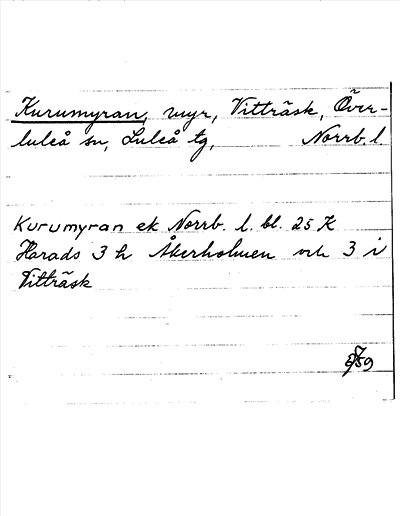 Kurumyran, myr, Vitträsk, Över-
luleå sn, Luleå tg, Norrb. l.
Kurumyran ek Norrb. l. bl. 25 K
Harads 3 h Åkerholmen och 3 i
Vitträsk